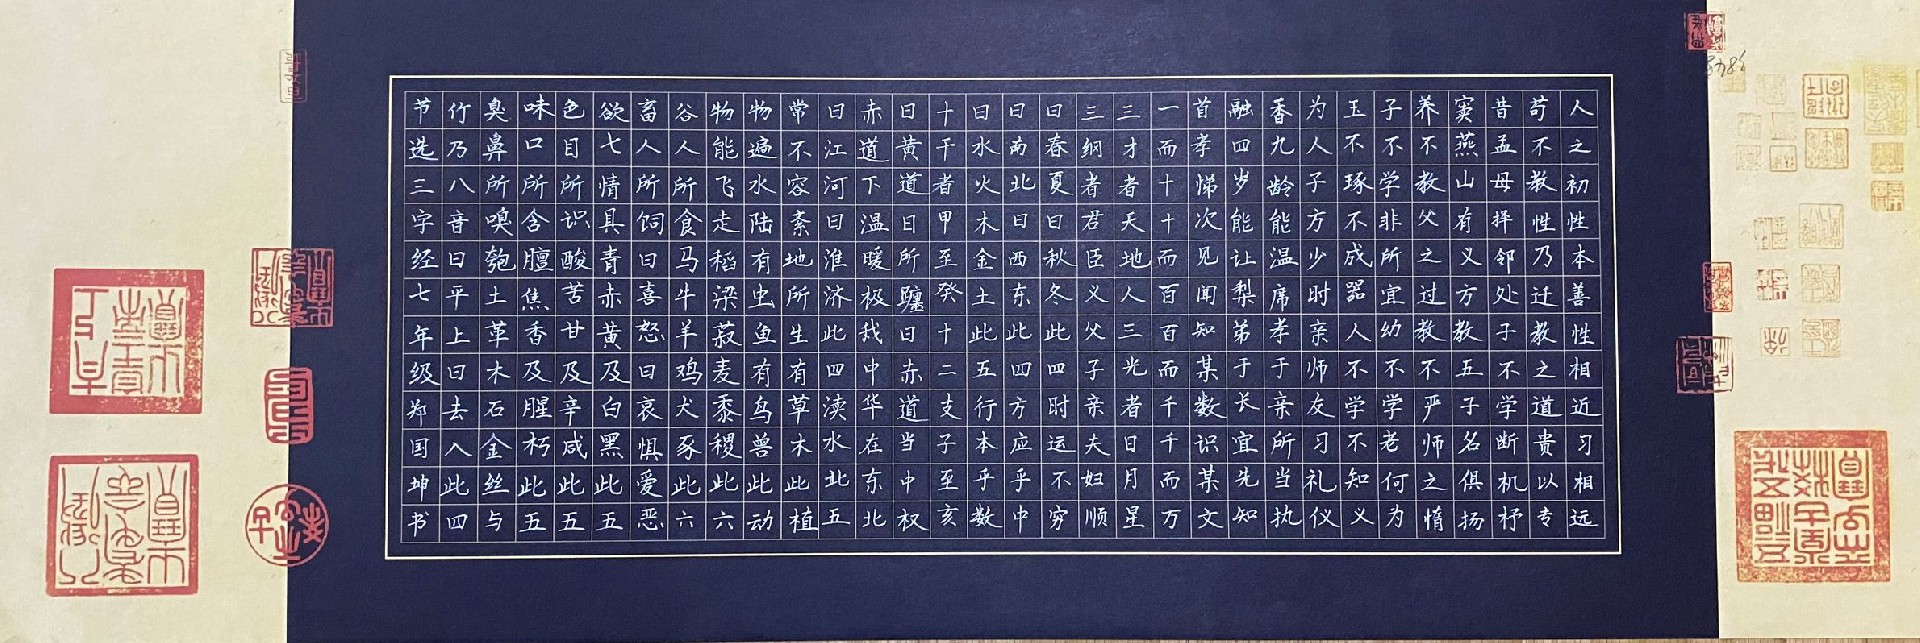 人之初性本善性相近习相远
苟不教性乃迁教之道贵以专
昔孟母择邻处子不学断机杼
窦燕山有义方教五子名俱扬
养不教父之过教不严师之惰
子不学非所宜幼不学老何为
玉不琢不成器人不学不知义
为人子方少时亲师友习礼仪
香九龄能温席孝于亲所当执
融四岁能让梨弟于长宜先知
首孝悌次见闻知某数识某文
一而十十而百百而千千而万
三才者天地人三光者日月星
三纲者君臣义父子亲夫妇顺
曰春夏曰秋冬此四时运不穷
曰南北曰西东此四方应乎中
曰水火木金土此五行本乎数
十干者甲至癸十二支子至亥
曰黄道日所躔曰赤道当中权
赤道下温暖极我中华在东北
曰江河曰淮济此四渎水北五
常不容紊地所生有草木此植
物遍水陆有虫鱼有鸟兽此动
物能飞走稻梁菽麦黍稷此六
谷人所食马牛羊鸡犬豕此六
畜人所饲曰喜怒曰哀惧爱恶
欲七情具青赤黄及白黑此五
色目所识酸苦甘及辛咸此五
味口所含膻焦香及腥朽此五
臭鼻所嗅匏土革木石金丝与
竹乃八音曰平上曰去入此四
节选三字经七年级郑国坤书